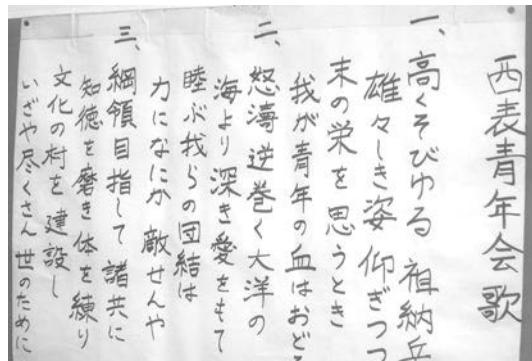 西表青年会歌
一、高くそびゆる 祖納
雄々しき姿 仰ぎつつ
末の栄を思うとき
我が青年の血はおどる
二、怒濤逆巻く大洋の
海より深き愛をもて
睦ぶ我らの団結は
力になにか敵せんや
三、綱領目指して 諸共に
知徳を磨き体を練り
文化の村を 建設し
いざや尽くさん 世のために